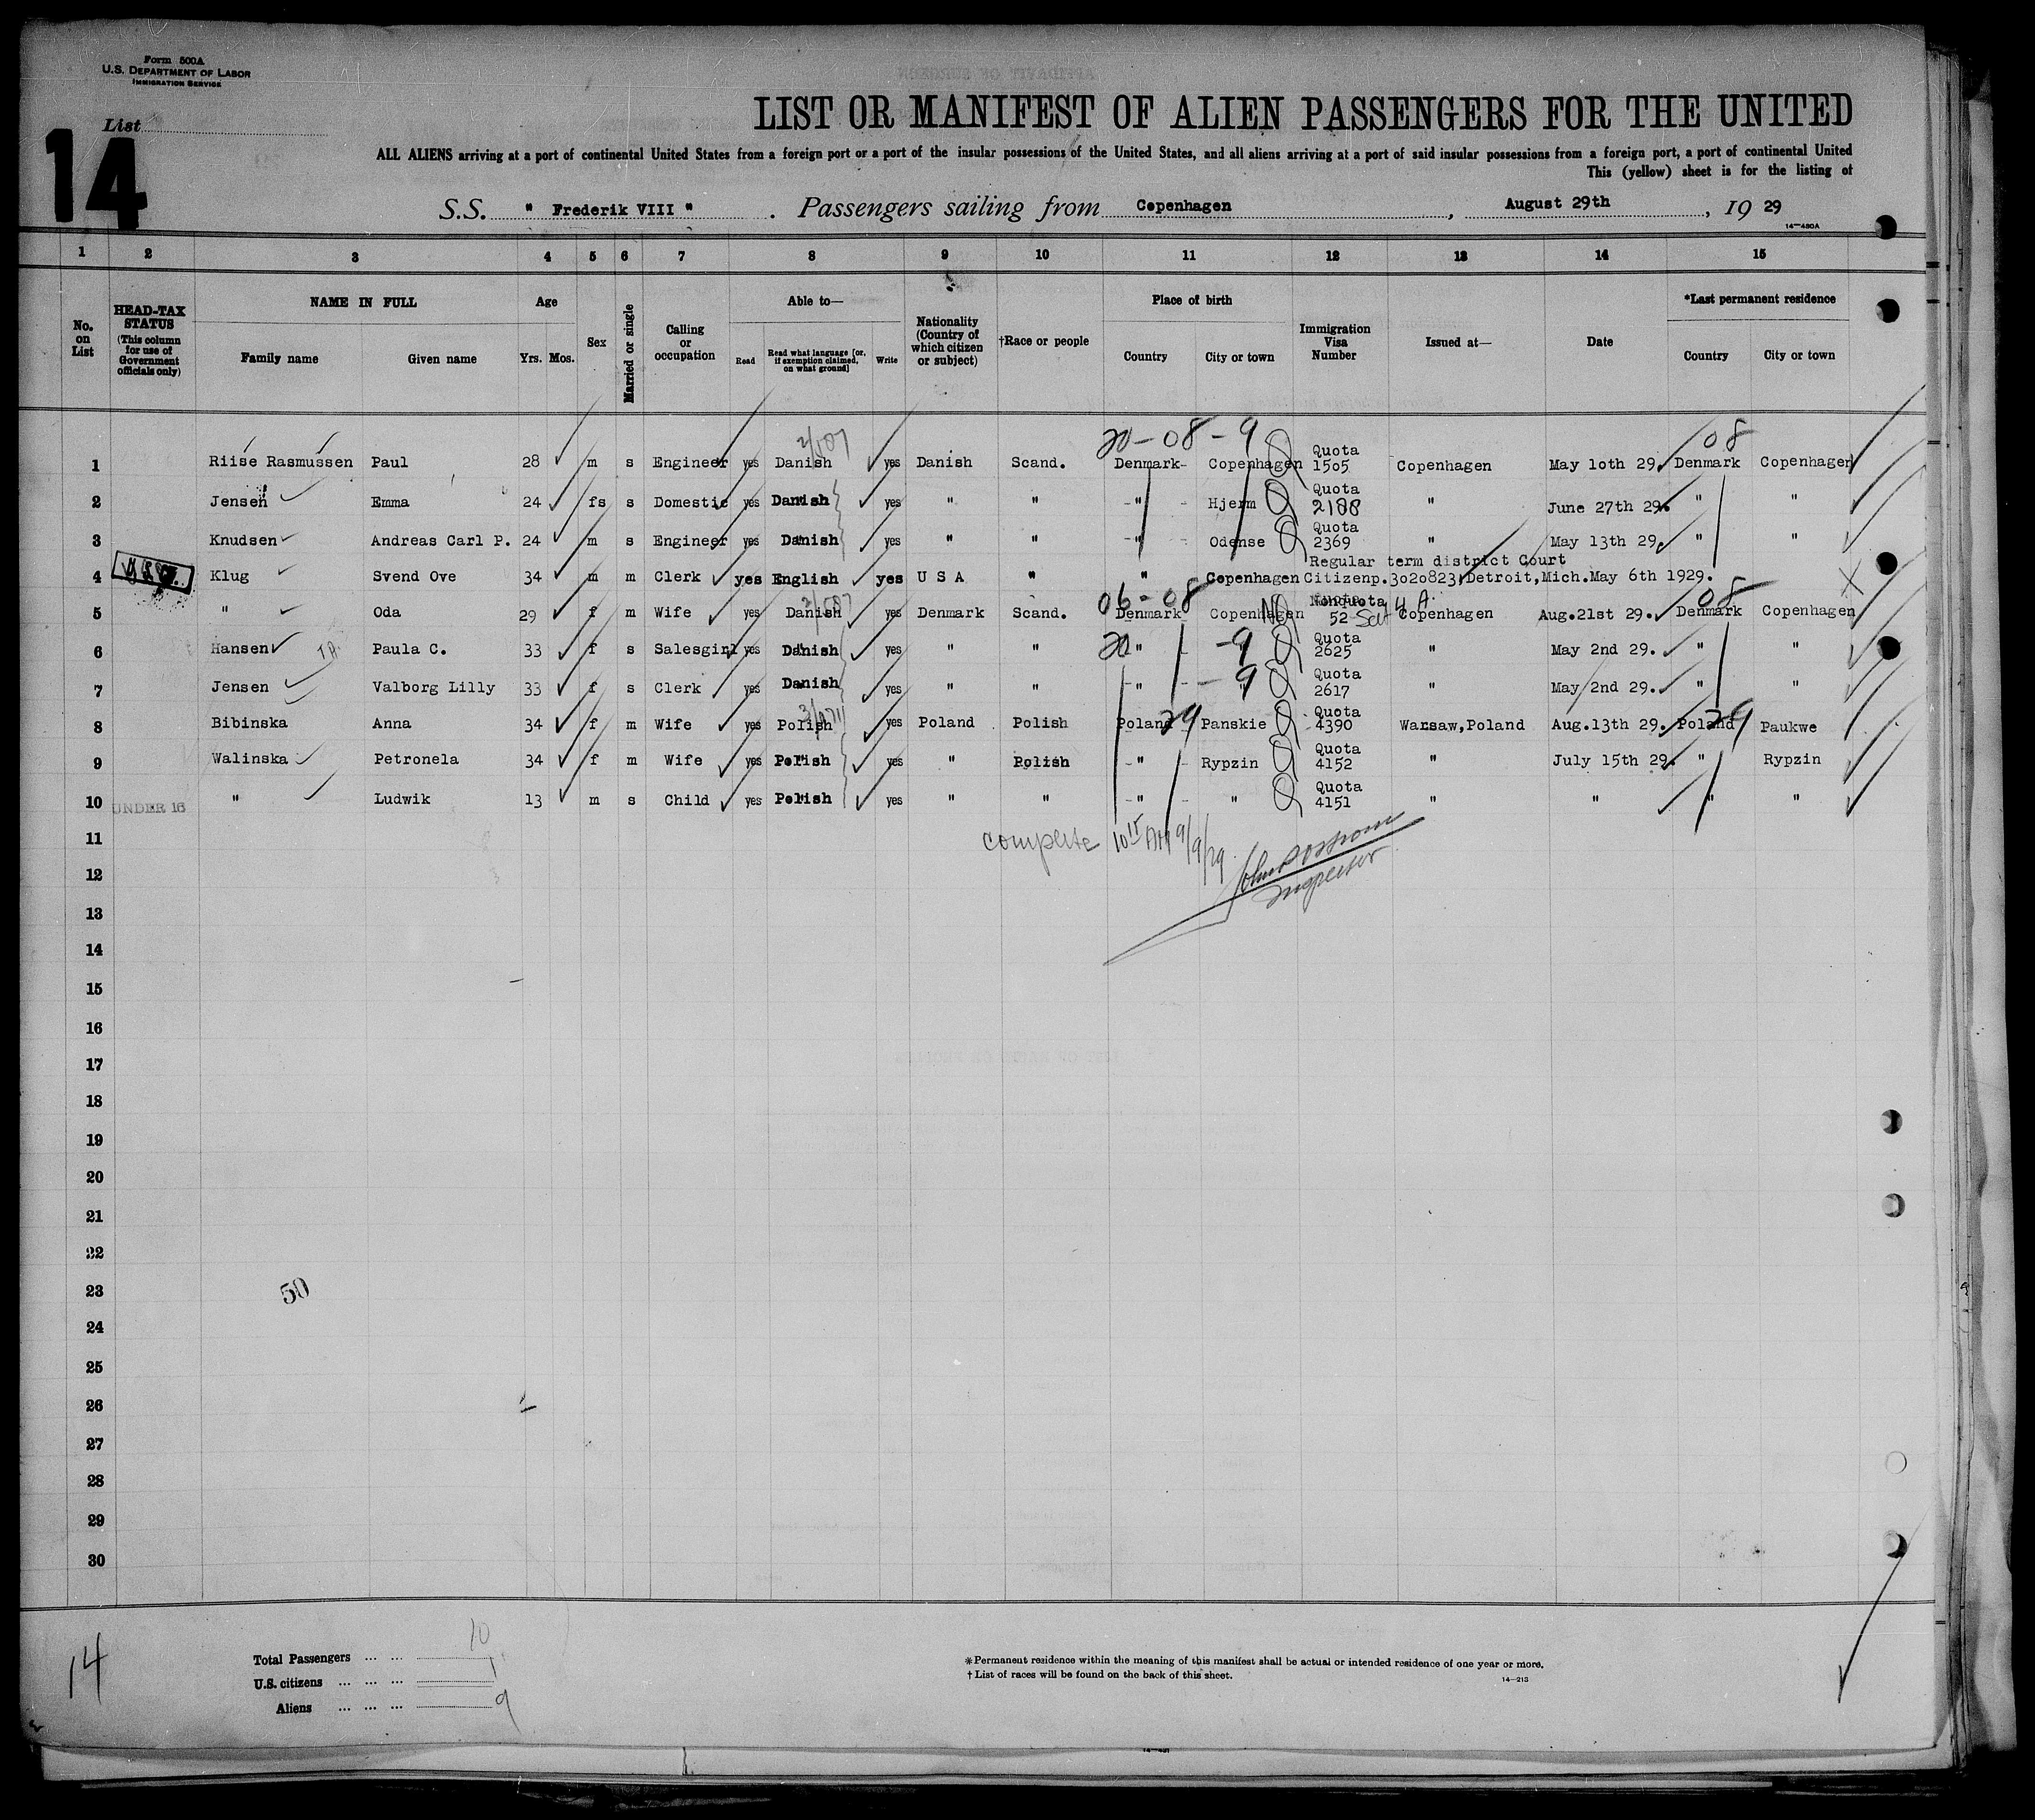 Form 500A
U.S. DEPARTMENT OF LABOR
IMMIGRATION SERVICE
List
14
LIST OR MANIFEST OF ALIEN PASSENGERS FOR THE UNITED
ALL ALIENS arriving at a port of continental United States from a foreign port or a port of the insular possessions of the United States, and all aliens arriving at a port of said insular possessions from a foreign port, a port of continental United
This (yellow) sheet is for the listing of
S.S. " Frederik VIII " . Passengers sailing from Copenhagen , August 29th , 19 29
14—480A
1 2 3 4 5 6 7 8 9 10 11 12 13 14 15
No. on List
HEAD-TAX STATUS (This column for use of Government officials only)
NAME IN FULL Family name Given name
Age Yrs. Mos.
Sex
Married or single
Calling or occupation
Able to— Read Read what language [or, if exemption claimed, on what ground] Write
Nationality (Country of which citizen or subject)
†Race or people
Place of birth Country City or town
Immigration Visa Number
Issued at—
Date
*Last permanent residence Country City or town
20-08-9 08
1 Riise Rasmussen Paul 28 m s Engineer yes Danish yes Danish Scand. Denmark- Copenhagen Quota 1505 Copenhagen May 10th 29. Denmark Copenhagen
2 Jensen Emma 24 fs s Domestic yes Danish yes " " -"- Hjerm Quota 2188 " June 27th 29. " "
3 Knudsen Andreas Carl P. 24 m s Engineer yes Danish yes " " -"- Odense Quota 2369 " May 13th 29. " "
Regular term district Court
4 Klug Svend Ove 34 m m Clerk yes English yes U S A " " Copenhagen Citizenp.3020823, Detroit,Mich.May 6th 1929.
06-08 08
5 " Oda 29 f m Wife yes Danish yes Denmark Scand. Denmark Copenhagen Nonquota 52 Sec 4 A. Copenhagen Aug.21st 29. Denmark Copenhagen
6 Hansen Paula C. 33 f s Salesgirl yes Danish yes " " 20 " -9 Quota 2625 " May 2nd 29. " "
7 Jensen Valborg Lilly 33 f s Clerk yes Danish yes " " -"- -9 " Quota 2617 " May 2nd 29. " "
8 Bibinska Anna 34 f m Wife yes Polish yes Poland Polish Poland 29 Panskie Quota 4390 Warsaw,Poland Aug.13th 29. Poland 29 Paukwe
9 Walinska Petronela 34 f m Wife yes Polish yes " Polish -"- Rypzin Quota 4152 " July 15th 29. " Rypzin
10 UNDER 16 " Ludwik 13 m s Child yes Polish yes " " -"- " Quota 4151 " " " "
11 complete 10 15 AM 9/9/29
12 Inspector
13
14
15
16
17
18
19
20
21
22
23 50
24
25
26
27
28
29
30
14
Total Passengers ... ... 10
U.S. citizens ... ... ... 1
Aliens ... ... ... 9
*Permanent residence within the meaning of this manifest shall be actual or intended residence of one year or more.
† List of races will be found on the back of this sheet.
14—213